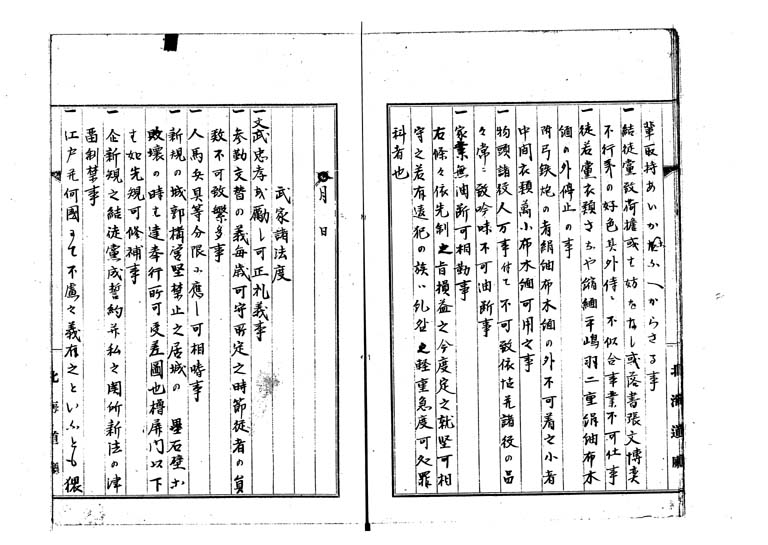 輩取持あいかゝ ふへからさる事
一 結徒黨致荷擔或は妨をなし或落書張文博奕
不行義の好色其外侍ニ不似合事業不可仕事
一 徒若黨衣類さちや縮緬平嶋羽二重絹紬布木
綿の外停止の事
附弓鉄炮の者絹紬布木綿の外不可着之小者
中間衣類萬小布木綿可用之事
一 物頭諸役人万事付て不可致依怙并諸役の品
々常ニ致吟味不可油断事
一 家業無油断可相勤事
右條々依先制之旨損益之今度定之訖堅可相
守之若有違犯の族ハ糺科之軽重急度可処罪
科者也
月 日
武家諸法度
一 文武忠孝を勵し可正礼義事
一 参勤交替の義毎歳可守所定之時節従者の員
数不可致繁多事
一 人馬兵具等分限ニ應し可相嗜事
一 新規の城郭構營堅禁止之居城の 壘石壁等
敗壊の時は達奉行所可受差圖也櫓屏門以下
は如先規可修補事
一 企新規之結徒黨成誓約并私之関所新法の津
留制禁事
一 江戸并何國にて不慮之義有之といふとも猥
北海道廳
北海道廳